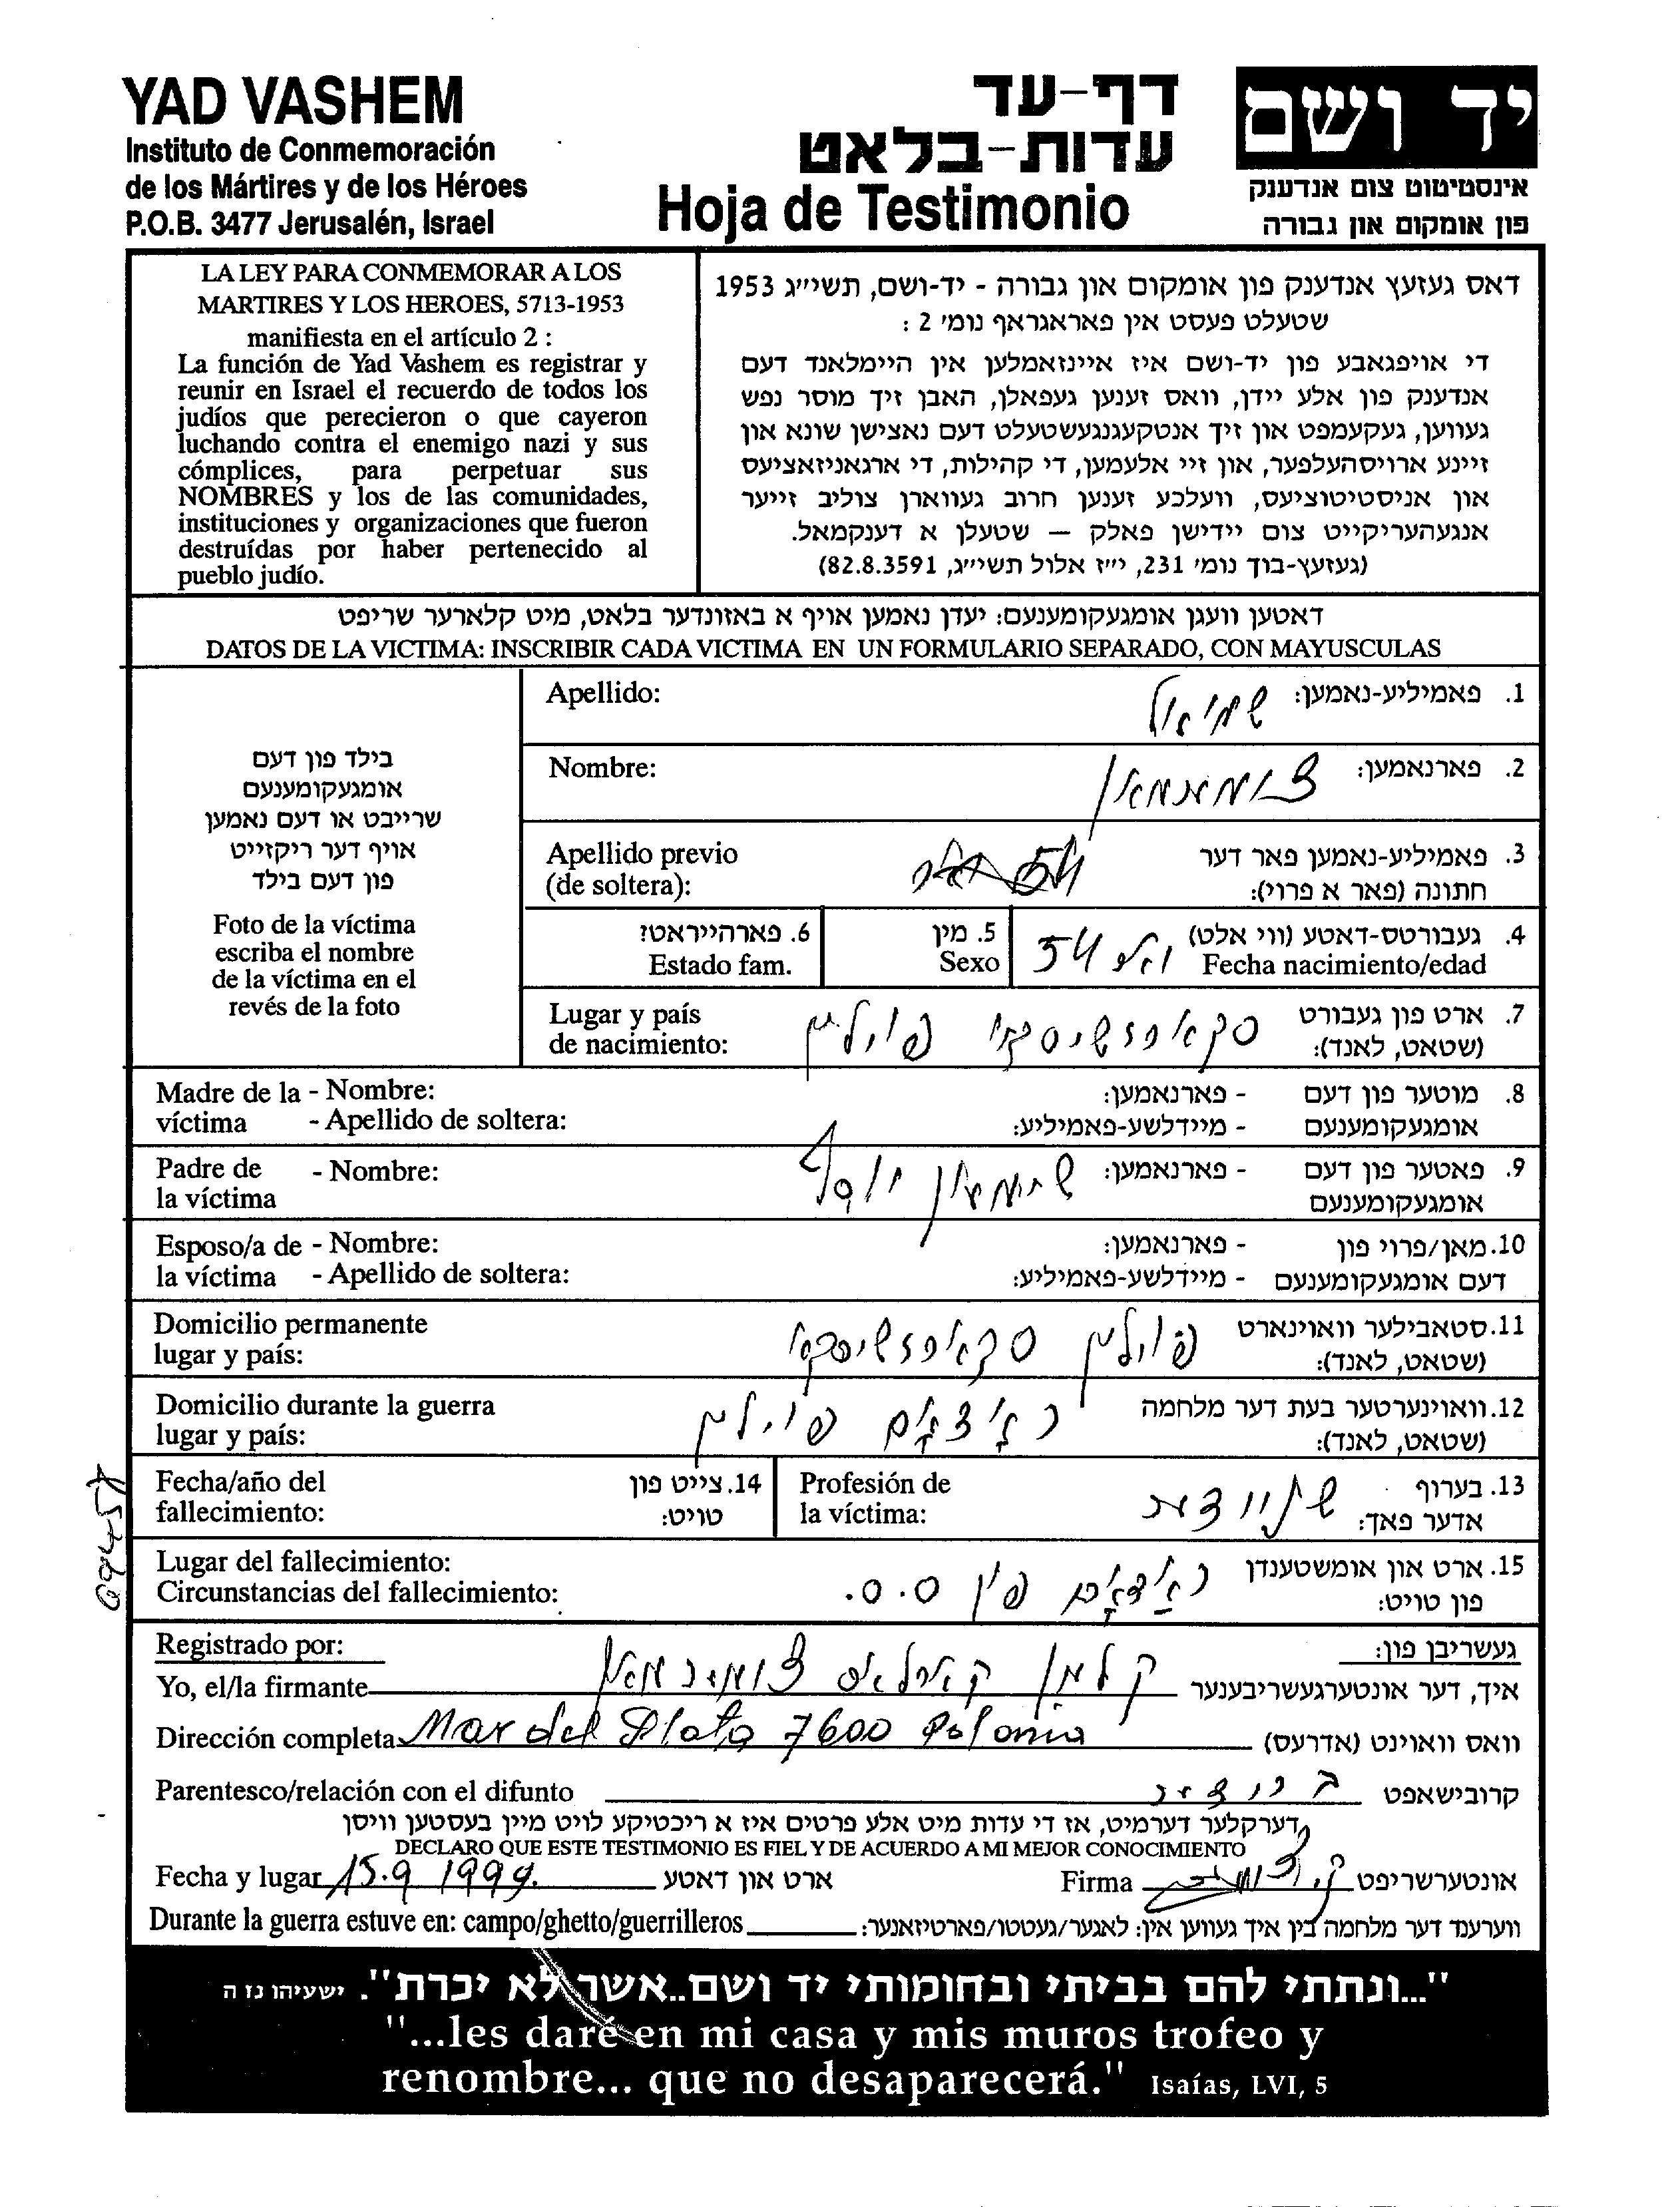 YAD VASHEM
Instituto de Conmemoración
de los Mártires y de los Héroes
P.O.B. 3477 Jerusalén, Israel
דף-עד
עדות-בלאט
Hoja de Testimonio
יד ושם
אינסטיטוט צום אנדענק
פון אומקום און גבורה
LA LEY PARA CONMEMORAR A LOS
MARTIRES Y LOS HEROES, 5713-1953
manifiesta en el artículo 2 :
La función de Yad Vashem es registrar y
reunir en Israel el recuerdo de todos los
judíos que perecieron o que cayeron
luchando contra el enemigo nazi y sus
cómplices, para perpetuar sus
NOMBRES y los de las comunidades,
instituciones y organizaciones que fueron
destruídas por haber pertenecido al
pueblo judío.
דאס געזעץ אנדענק פון אומקום און גבורה - יד-ושם, תשי״ג 1953
שטעלט פעסט אין פאראגראף נומ' 2 :
די אויפגאבע פון יד-ושם איז איינזאמלען אין היימלאנד דעם
אנדענק פון אלע יידן, וואס זענען געפאלן, האבן זיך מוסר נפש
געווען, געקעמפט און זיך אנטקעגנגעשטעלט דעם נאצישן שונא און
זיינע ארויסהעלפער, און זיי אלעמען, די קהילות, די ארגאניזאציעס
און אניסטיטוציעס, וועלכע זענען חרוב געווארן צוליב זייער
אנגעהעריקייט צום יידישן פאלק – שטעלן א דענקמאל.
(געזעץ-בוך נומ' 231, י״ז אלול תשי״ג, 82.8.3591)
דאטען וועגן אומגעקומענעם: יעדן נאמען אויף א באזונדער בלאט, מיט קלארער שריפט
DATOS DE LA VICTIMA: INSCRIBIR CADA VICTIMA EN UN FORMULARIO SEPARADO, CON MAYUSCULAS
בילד פון דעם
אומגעקומענעם
שרייבט או דעם נאמען
אויף דער ריקזייט
פון דעם בילד
Foto de la víctima
escriba el nombre
de la víctima en el
revés de la foto
1. פאמיליע-נאמען: Apellido:
2. פארנאמען: Nombre:
3. פאמיליע-נאמען פאר דער
חתונה (פאר א פרוי):
Apellido previo
(de soltera):
4. געבורטס-דאטע (ווי אלט) 54
Fecha nacimiento/edad
5. מין
Sexo
6. פארהייראט?
Estado fam.
7. ארט פון געבורט
(שטאט, לאנד): פוילין
Lugar y país
de nacimiento:
8. מוטער פון דעם - פארנאמען:
אומגעקומענעם - מיידלשע-פאמיליע:
Madre de la - Nombre:
víctima - Apellido de soltera:
9. פאטער פון דעם - פארנאמען: יוסף
אומגעקומענעם
Padre de - Nombre:
la víctima
10. מאן/פרוי פון - פארנאמען:
דעם אומגעקומענעם - מיידלשע-פאמיליע:
Esposo/a de - Nombre:
la víctima - Apellido de soltera:
11. סטאבילער וואוינארט
(שטאט, לאנד): פוילין
Domicilio permanente
lugar y país:
12. וואוינערטער בעת דער מלחמה
(שטאט, לאנד): ראדאם פוילין
Domicilio durante la guerra
lugar y país:
13. בערוף
אדער פאך: שניידער
Profesión de
la víctima:
14. צייט פון
טויט:
Fecha/año del
fallecimiento:
15. ארט און אומשטענדן
פון טויט:
Lugar del fallecimiento:
Circunstancias del fallecimiento:
געשריבן פון:
Registrado por:
איך, דער אונטערגעשריבענער קלמן קארלאס
Yo, el/la firmante
Dirección completa Mar del Plata 7600 Polonia וואס וואוינט (אדרעס)
Parentesco/relación con el difunto ברודער קרובישאפט
דערקלער דערמיט, אז די עדות מיט אלע פרטים איז א ריכטיקע לויט מיין בעסטען וויסן
DECLARO QUE ESTE TESTIMONIO ES FIEL Y DE ACUERDO A MI MEJOR CONOCIMIENTO
Fecha y lugar 15.9 1999. ארט און דאטע Firma אונטערשריפט
Durante la guerra estuve en: campo/ghetto/guerrilleros ווערענד דער מלחמה בין איך געווען אין: לאגער/געטטו/פארטיזאנער:
"...ונתתי להם בביתי ובחומותי יד ושם..אשר לא יכרת". ישעיהו נז ה
"...les daré en mi casa y mis muros trofeo y
renombre... que no desaparecerá." Isaías, LVI, 5